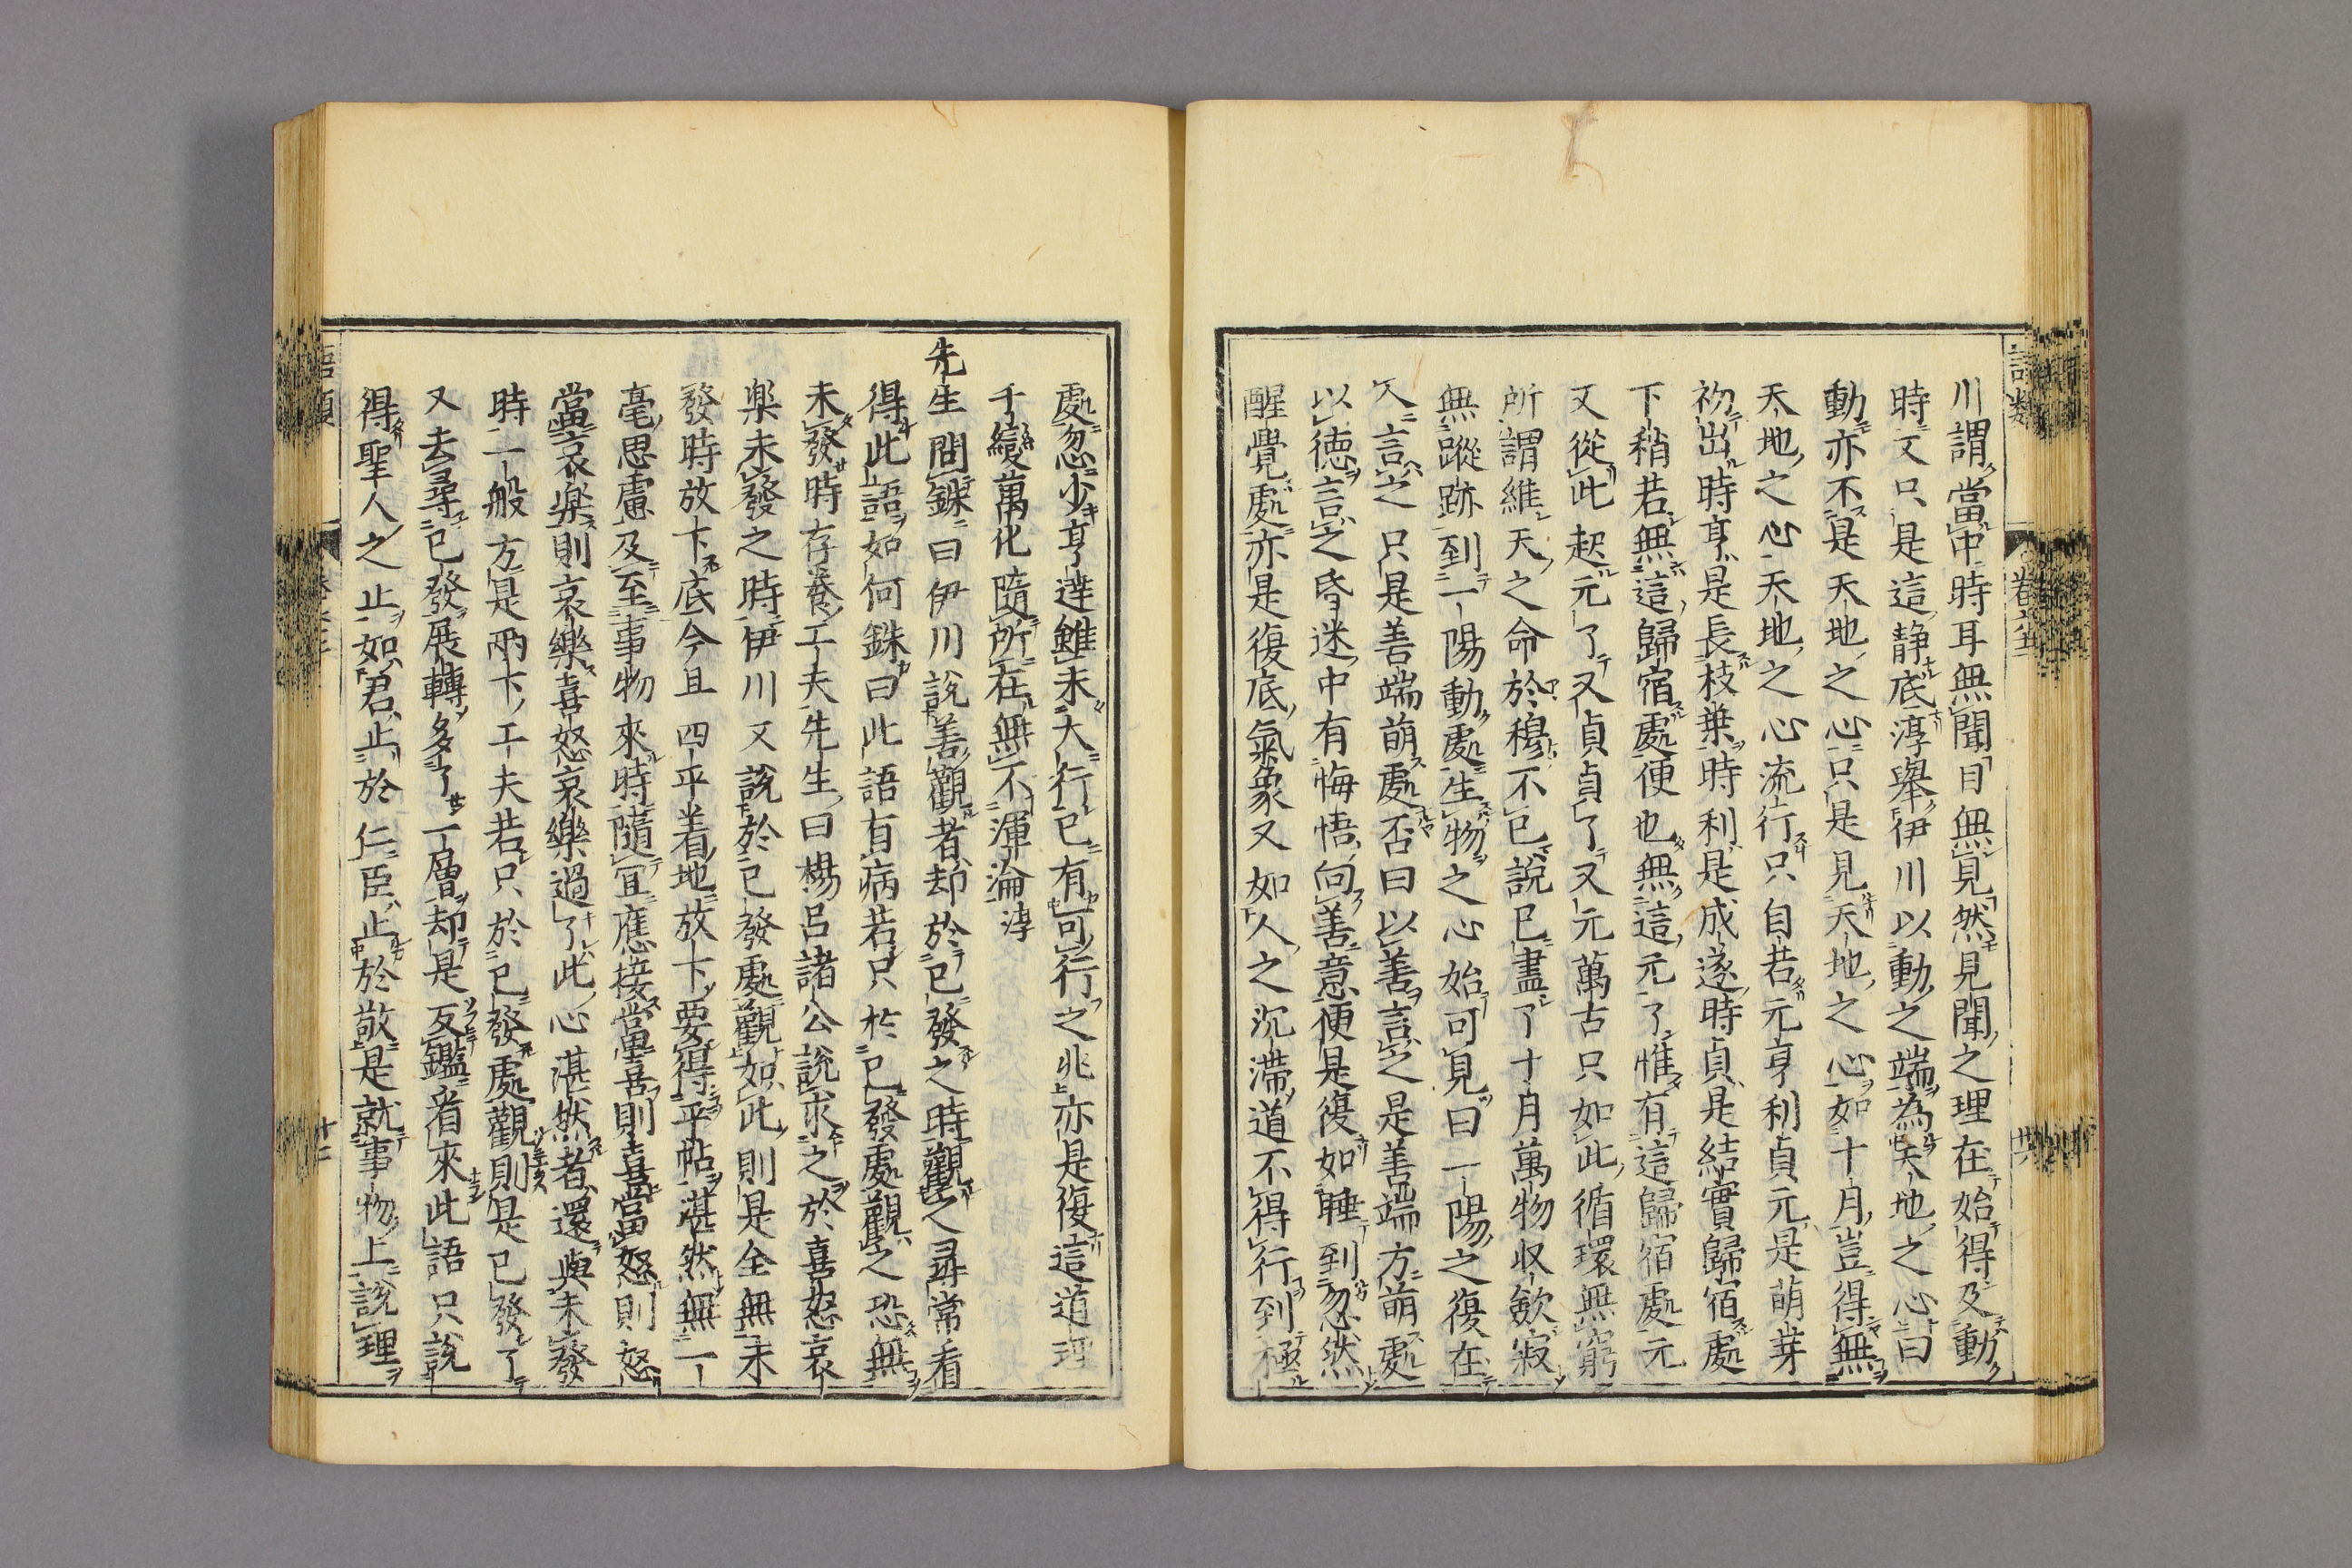 川謂當中時耳無聞目無見然見聞之理在始得及動
時又只是這静底淳舉伊川以動之端為天地之心曰
動亦不是天地之心只是見天地之心如十月豈得無
天地之心天地之心流行只自若元亨利貞元是萌芽
初出時亨是長枝葉時利是成遂時貞是結實歸宿處
下稍若無這歸宿處便也無這元了惟有這歸宿處元
又從此起元了又貞貞了又元萬古只如此循環無窮
所謂維天之命於穆不已說已盡了十月萬物収歛寂
無蹤跡到一陽動處生物之心始可見曰一陽之復在
人言之只是善端萌處否曰以善言之是善端方萌處
以德言之昏迷中有悔悟向善意便是復如睡到忽然
醒覺處亦是復底氣象又如人之沉滯道不得行到極
處忽少亨達雖未大行已有可行之兆亦是復這道理
千變萬化隨所在無不渾淪淳
先生問銖曰伊川說善觀者却於已發之時觀之尋常看
得此語如何銖曰此語有病若只於已發處觀之恐無
未發時存養工夫先生曰楊呂諸公說求之於喜怒哀
楽未發之時伊川又說於已發處觀如此則是全無未
發時放下底今且四平著地放下要得平帖湛然無一
毫思慮及至事物來時隨宜應接當喜則喜當怒則怒
當哀楽則哀樂喜怒哀樂過了此心湛然者還與未發
時一般方是兩下工夫若只於已發處觀則是已發了
又去尋已發展轉多了一層却是反鑑看來此語只說
得聖人之止如君止於仁臣止於敬是就事物上說理